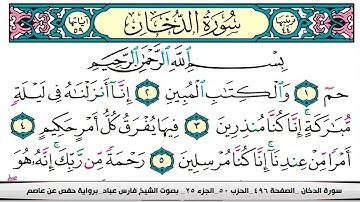 ترتيبها ٤٤ سُورَةُ الدُّخَانِ آياتها ٥٩
بِسْمِ اللَّهِ الرَّحْمَٰنِ الرَّحِيمِ
حمٓ ١ وَالْكِتَابِ الْمُبِينِ ٢ إِنَّا أَنزَلْنَاهُ فِي لَيْلَةٍ
مُّبَارَكَةٍ إِنَّا كُنَّا مُنذِرِينَ ٣ فِيهَا يُفْرَقُ كُلُّ أَمْرٍ حَكِيمٍ ٤
أَمْرًا مِّنْ عِندِنَا إِنَّا كُنَّا مُرْسِلِينَ ٥ رَحْمَةً مِّن رَّبِّكَ إِنَّهُ هُوَ
سورة الدخان _الصفحة ٤٩٦_الحزب ٥٠_الجزء ٢٥_ بصوت الشيخ فارس عباد_برواية حفص عن عاصم